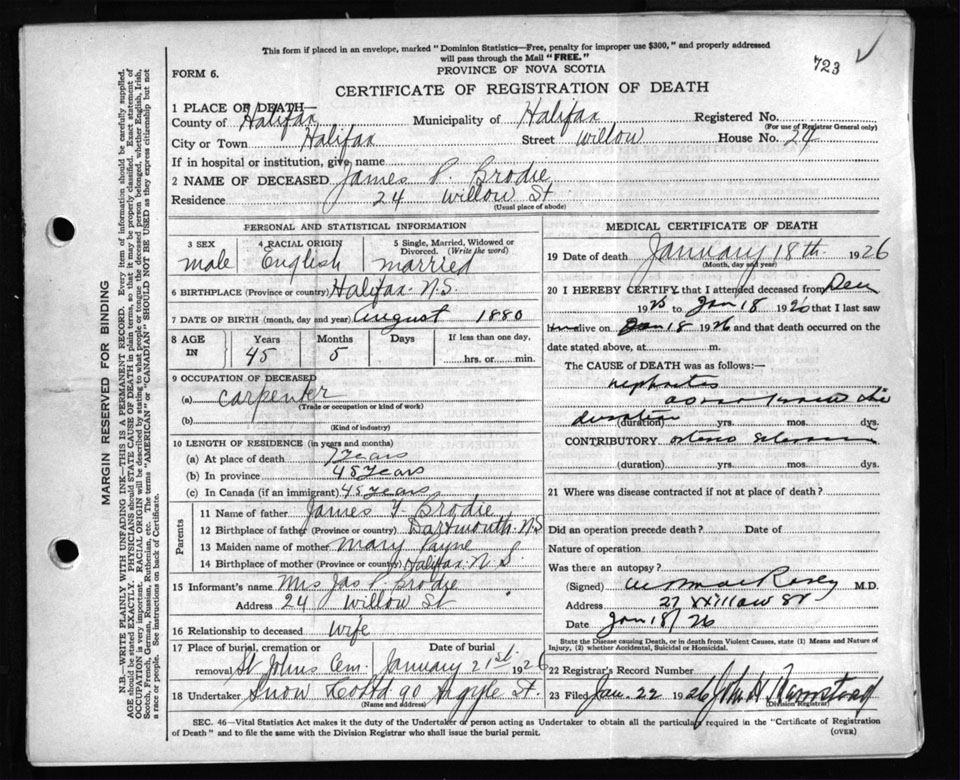 This form if placed in an envelope, marked "Dominion Statistics—Free, penalty for improper use $300," and properly addressed
will pass through the Mail "FREE."
723
PROVINCE OF NOVA SCOTIA
FORM 6.
CERTIFICATE OF REGISTRATION OF DEATH
1 PLACE OF DEATH—
County of Halifax Municipality of Halifax Registered No.
(For use of Registrar General only)
City or Town Halifax Street Willow House No. 24
If in hospital or institution, give name
2 NAME OF DECEASED James P. Brodie
Residence 24 Willow St
(Usual place of abode)
PERSONAL AND STATISTICAL INFORMATION
3 SEX 4 RACIAL ORIGIN 5 Single, Married, Widowed or Divorced. (Write the word)
male English married
6 BIRTHPLACE (Province or country) Halifax N.S.
7 DATE OF BIRTH (month, day and year) August 1880
8 AGE IN Years Months Days If less than one day,
45 5 hrs. or min.
9 OCCUPATION OF DECEASED
(a) Carpenter
(Trade or occupation or kind of work)
(b)
(Kind of industry)
10 LENGTH OF RESIDENCE (in years and months)
(a) At place of death 7 years
(b) In province 45 years
(c) In Canada (if an immigrant) 45 years
Parents
11 Name of father James Y. Brodie
12 Birthplace of father (Province or country) Dartmouth N.S
13 Maiden name of mother Mary Payne
14 Birthplace of mother (Province or country) Halifax N S
15 Informant's name Mrs Jas P. Brodie
Address 24 Willow St
16 Relationship to deceased wife
17 Place of burial, cremation or removal Date of burial
St Johns Cem. January 21st. 1926
18 Undertaker Snow & Co Ltd 90 Argyle St.
(Name and address)
MEDICAL CERTIFICATE OF DEATH
19 Date of death January 18th 1926
(Month, day and year)
20 I HEREBY CERTIFY that I attended deceased from Dec
1925 to Jan 18 1926 that I last saw
him alive on Jan 18 1926 and that death occurred on the
date stated above, at m.
The CAUSE of DEATH was as follows:—
nephritis
duration
(duration) yrs. mos. dys.
CONTRIBUTORY
(duration) yrs. mos. dys.
21 Where was disease contracted if not at place of death?
Did an operation precede death? Date of
Nature of operation
Was there an autopsy?
(Signed) M.D.
Address 27 Willow St
Date Jan 18/26
State the Disease causing Death, or in death from Violent Causes, state (1) Means and Nature of
Injury, (2) whether Accidental, Suicidal or Homicidal.
22 Registrar's Record Number
23 Filed Jan. 22 1926 John H
(Division Registrar)
SEC. 46—Vital Statistics Act makes it the duty of the Undertaker or person acting as Undertaker to obtain all the particulars required in the "Certificate of Registration
of Death" and to file the same with the Division Registrar who shall issue the burial permit.
(OVER)
MARGIN RESERVED FOR BINDING
N.B.—WRITE PLAINLY WITH UNFADING INK—THIS IS A PERMANENT RECORD. Every item of information should be carefully supplied.
AGE should be stated EXACTLY. PHYSICIANS should STATE CAUSE OF DEATH in plain terms, so that it may be properly classified. Exact statement of
OCCUPATION is very important. RACIAL ORIGIN will be described by stating to what people or tongue the deceased person belonged, whether English, Irish,
Scotch, French, German, Russian, Ruthenian, etc. The terms "AMERICAN" or "CANADIAN" SHOULD NOT BE USED as they express citizenship but not
a race or people. See instructions on back of Certificate.